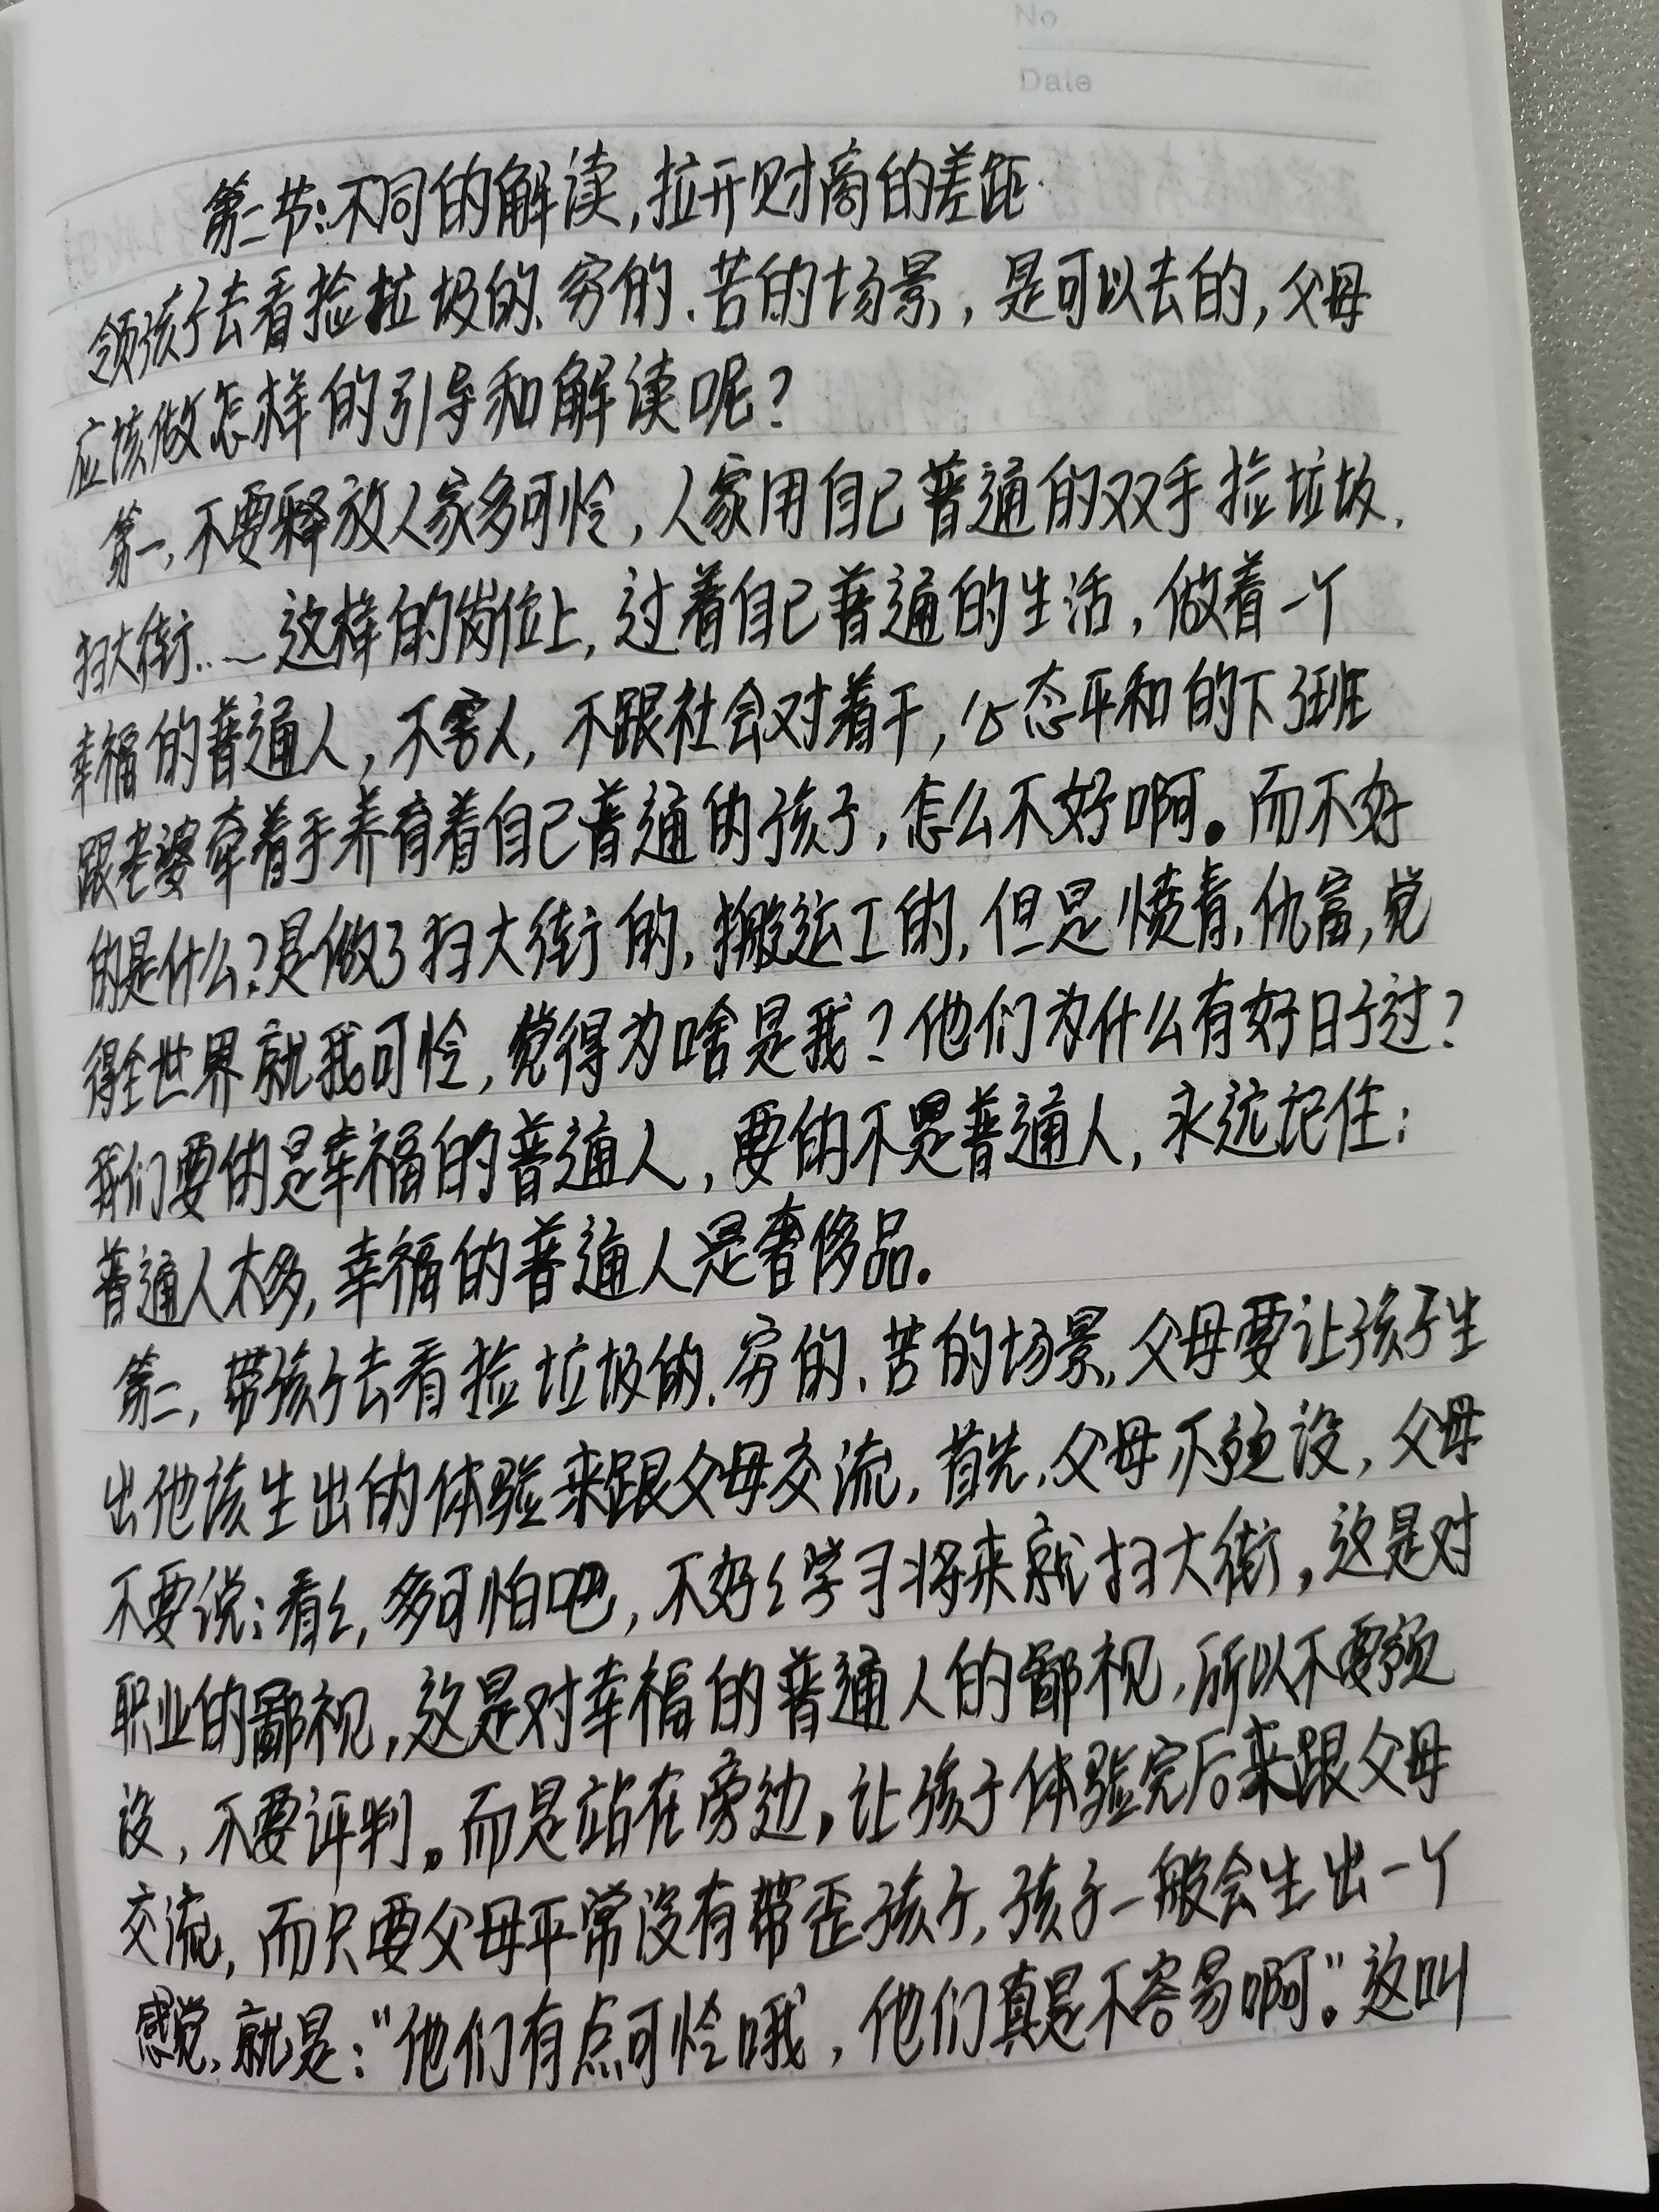 No
Date
第二节:不同的解读,拉开财商的差距
领孩子去看捡垃圾的、穷的、苦的场景,是可以去的,父母
应该做怎样的引导和解读呢?
第一,不要释放人家多可怜,人家用自己普通的双手捡垃圾、
扫大街……这样的岗位上,过着自己普通的生活,做着一个
幸福的普通人,不害人,不跟社会对着干,心态平和的下班
跟老婆牵着手养育着自己普通的孩子,怎么不好啊。而不好
的是什么?是做了扫大街的,搬运工的,但是愤青,仇富,觉
得全世界就我可怜,觉得为啥是我?他们为什么有好日子过?
我们要的是幸福的普通人,要的不是普通人,永远记住:
普通人太多,幸福的普通人是奢侈品。
第二,带孩子去看捡垃圾的、穷的、苦的场景,父母要让孩子生
出他该生出的体验来跟父母交流,首先,父母不预设,父母
不要说:看々,多可怕吧,不好々学习将来就扫大街,这是对
职业的鄙视,这是对幸福的普通人的鄙视,所以不要预
设,不要评判。而是站在旁边,让孩子体验完后来跟父母
交流,而只要父母平常没有带歪孩子,孩子一般会生出一个
感觉,就是:"他们有点可怜哦,他们真是不容易啊"。这叫